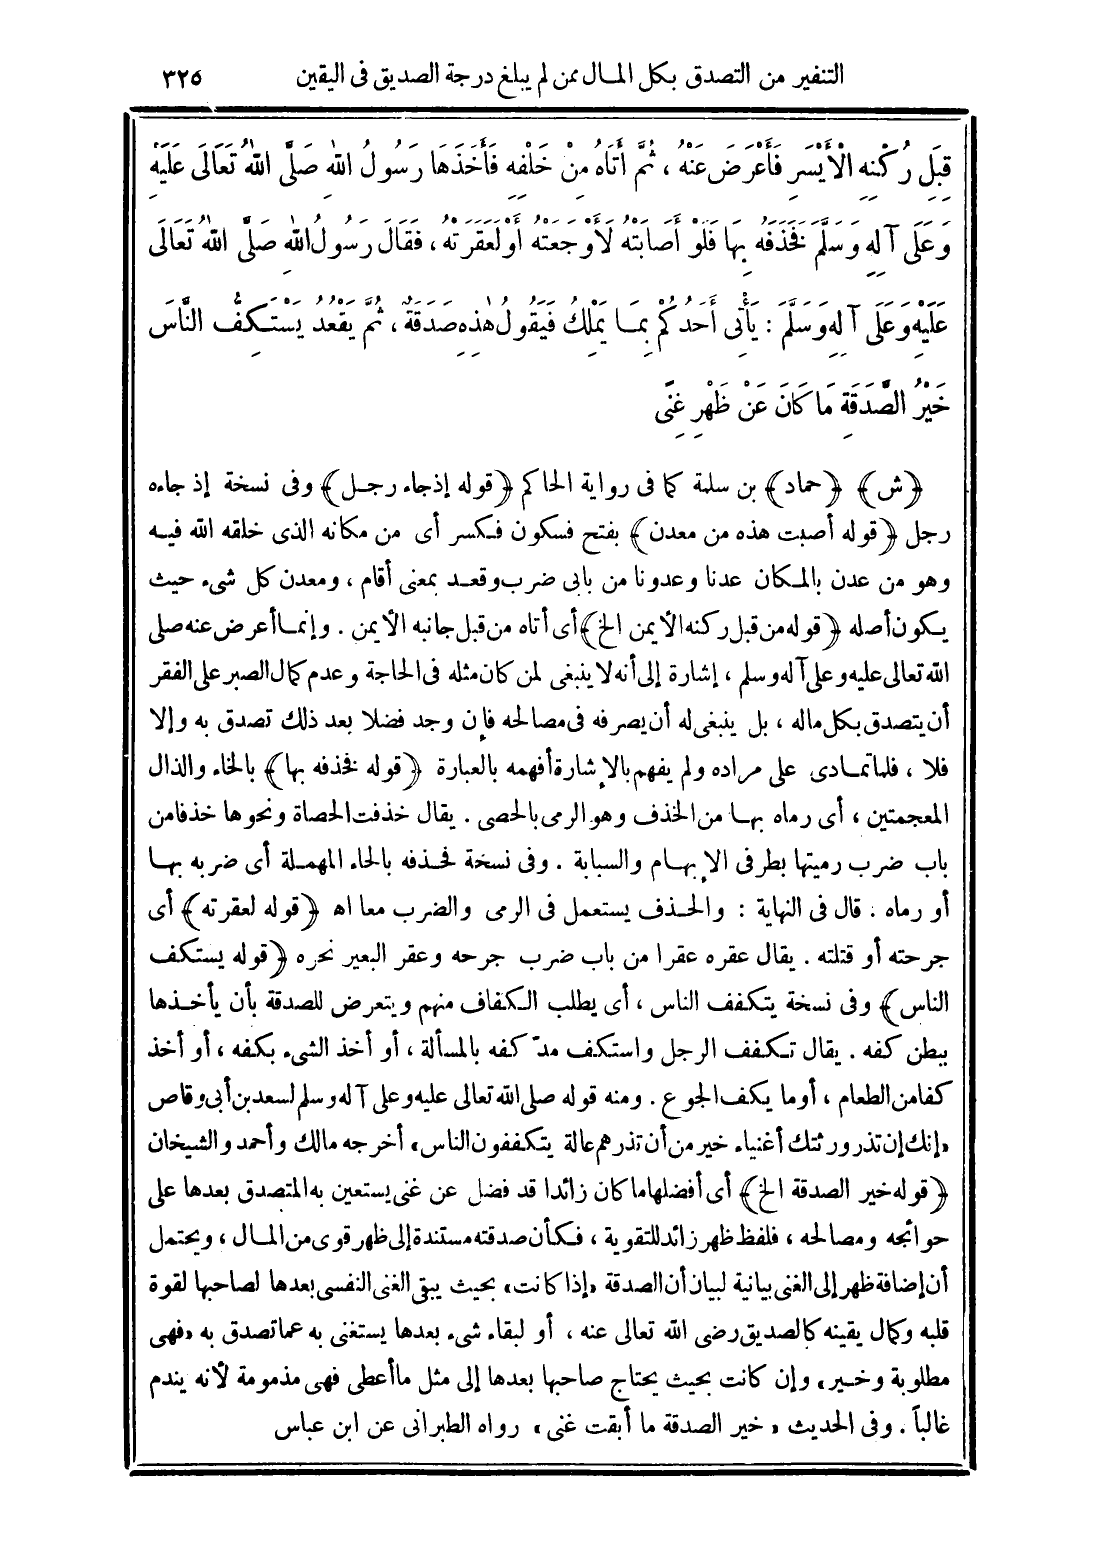 التنفير من التصدق بكل المال ممن لم يبلغ درجة الصديق فى اليقين ٣٢٥
قِبَلِ رُكْنِهِ الْأَيْسَرِ فَأَعْرَضَ عَنْهُ ، ثُمَّ أَتَاهُ مِنْ خَلْفِهِ فَأَخَذَهَا رَسُولُ اللهِ صَلَّى اللهُ تَعَالَى عَلَيْهِ
وَعَلَى آلِهِ وَسَلَّمَ فَخَذَفَهُ بِهَا فَلَوْ أَصَابَتْهُ لَأَوْجَعَتْهُ أَوْ لَعَقَرَتْهُ ، فَقَالَ رَسُولُ اللهِ صَلَّى اللهُ تَعَالَى
عَلَيْهِ وَعَلَى آلِهِ وَسَلَّمَ : يَأْتِى أَحَدُكُمْ بِمَا يَمْلِكُ فَيَقُولُ هٰذِهِ صَدَقَةٌ ، ثُمَّ يَقْعُدُ يَسْتَكِفُّ النَّاسَ
خَيْرُ الصَّدَقَةِ مَا كَانَ عَنْ ظَهْرِ غِنًى
﴿ش﴾ ﴿حماد﴾ بن سلمة كما فى رواية الحاكم ﴿قوله إذ جاء رجل﴾ وفى نسخة إذ جاءه
رجل ﴿قوله أصبت هذه من معدن﴾ بفتح فسكون فكسر أى من مكانه الذى خلقه الله فيه
وهو من عدن بالمكان عدنا وعدونا من بابى ضرب وقعد بمعنى أقام ، ومعدن كل شىء حيث
يكون أصله ﴿قوله من قبل ركنه الأيمن الخ﴾ أى أتاه من قبل جانبه الأيمن . وإنما أعرض عنه صلى
الله تعالى عليه وعلى آله وسلم ، إشارة إلى أنه لا ينبغى لمن كان مثله فى الحاجة وعدم كمال الصبر على الفقر
أن يتصدق بكل ماله ، بل ينبغى له أن يصرفه فى مصالحه فإن وجد فضلا بعد ذلك تصدق به وإلا
فلا ، فلما تمادى على مراده ولم يفهم بالإشارة أفهمه بالعبارة ﴿قوله فخذفه بها﴾ بالخاء والذال
المعجمتين ، أى رماه بها من الخذف وهو الرمى بالحصى . يقال خذفت الحصاة ونحوها خذفا من
باب ضرب رميتها بطرفى الإبهام والسبابة . وفى نسخة فحذفه بالحاء المهملة أى ضربه بها
أو رماه . قال فى النهاية : والحذف يستعمل فى الرمى والضرب معا اه ﴿قوله لعقرته﴾ أى
جرحته أو قتلته . يقال عقره عقرا من باب ضرب جرحه وعقر البعير نحره ﴿قوله يستكف
الناس﴾ وفى نسخة يتكفف الناس ، أى يطلب الكفاف منهم ويتعرض للصدقة بأن يأخذها
ببطن كفه . يقال تكفف الرجل واستكف مدّ كفه بالمسألة ، أو أخذ الشىء بكفه ، أو أخذ
كفا من الطعام ، أو ما يكف الجوع . ومنه قوله صلى الله تعالى عليه وعلى آله وسلم لسعد بن أبى وقاص
«إنك إن تذر ورثتك أغنياء خير من أن تذرهم عالة يتكففون الناس» أخرجه مالك وأحمد والشيخان
﴿قوله خير الصدقة الخ﴾ أى أفضلها ما كان زائدا قد فضل عن غنى يستعين به المتصدق بعدها على
حوائجه ومصالحه ، فلفظ ظهر زائد للتقوية ، فكأن صدقته مستندة إلى ظهر قوى من المال ، ويحتمل
أن إضافة ظهر إلى الغنى بيانية لبيان أن الصدقة «إذا كانت» بحيث يبقى الغنى النفسى بعدها لصاحبها لقوة
قلبه وكمال يقينه كالصديق رضى الله تعالى عنه ، أو لبقاء شىء بعدها يستغنى به عما تصدق به «فهى
مطلوبة وخير» وإن كانت بحيث يحتاج صاحبها بعدها إلى مثل ما أعطى فهى مذمومة لأنه يندم
غالباً . وفى الحديث « خير الصدقة ما أبقت غنى » رواه الطبرانى عن ابن عباس